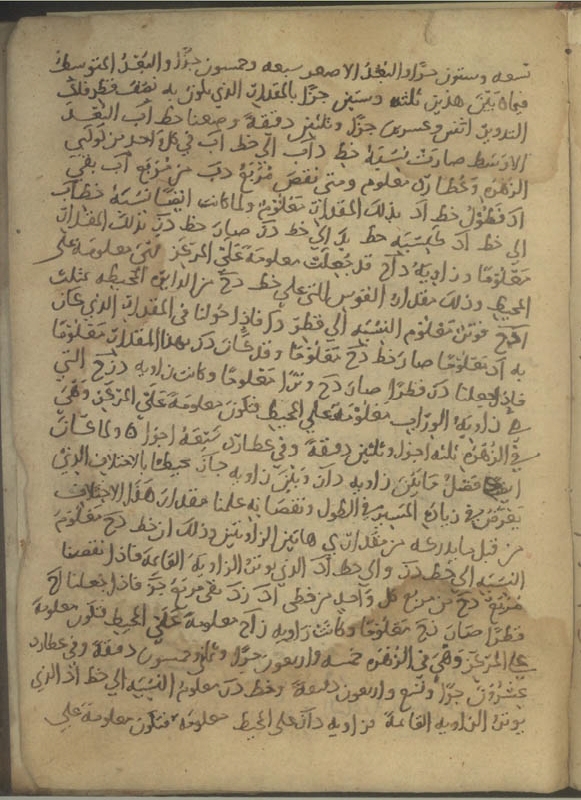 تسعه وستون جزًا والبعد الاصغر سبعه وخمسون جزًا والبعد المتوسط
فيما بين هذين ثلثه وستين جزًا بالمقدار الذي يكون به نصف قطر فلك
التدوير اثنين وعشرين جزًا وثلثين دقيقة وضعنا خط اب البعد
الاوسط صارت نسبة خط د اب الي خط اب في كل واحد من كوكبي
الزهره وعطارد معلوم ومتي نقص مربع دب من مربع اب بقي
اد فطول خط اد بذلك المقدار معلوم ولما كانت ايضا نسبة خط اب
الي خط اد كنسبه خط بد الي خط دز صار خط دز بذلك المقدار
معلوما وزاويه داح قد جعلت معلومة علي المركز فهي معلومة علي
المحيط وذلك مقدار القوس التي علي خط دح من الدايره المحيطه بمثلث
ادح فوتر معلوم النسبه الي قطر دا فاذا حولنا في المقدار الذي كان
به اد معلوما صار خط دح معلوما وقد كان دز بهذا المقدار معلوما
فاذا جعلنا دز قطرا صار دح وترا معلوما وكانت زاويه دزح التي
هي زاوية الوراب معلومة علي المحيط فتكون معلومة علي المركز وهي
في الزهره ثلثه اجزا وثلثين دقيقة وفي عطارد سبعة اجزا ولما كان
ايضا فضل ما بين زاويه داز وبين زاويه حاز محيطا بالاختلاف الذي
يعرض في زيادة المسير في الطول ونقصانه علمنا مقدار هذا الاختلاف
من قبل ما يدركه من مقداري هاتين الزاويتين وذلك ان خط دح معلوم
النسبه الي خط دز والي خط اد الذي يوتر الزاوية القايمة فاذا نقصنا
مربع دح من مربع كل واحد من خطي اد زد بقي مربع حز فاذا جعلنا اح
قطرا صار زح معلوما وكانت زاويه زاح معلومة علي المحيط فتكون معلومة
علي المركز وهي في الزهره خمسه واربعون جزًا وثماني وخمسون دقيقة وفي عطارد
عشرون جزًا وتسع واربعون دقيقة وخط دز معلوم النسبه الي خط اد الذي
يوتر الزاويه القايمة فزاويه داز علي المحيط معلومة فتكون معلومة علي